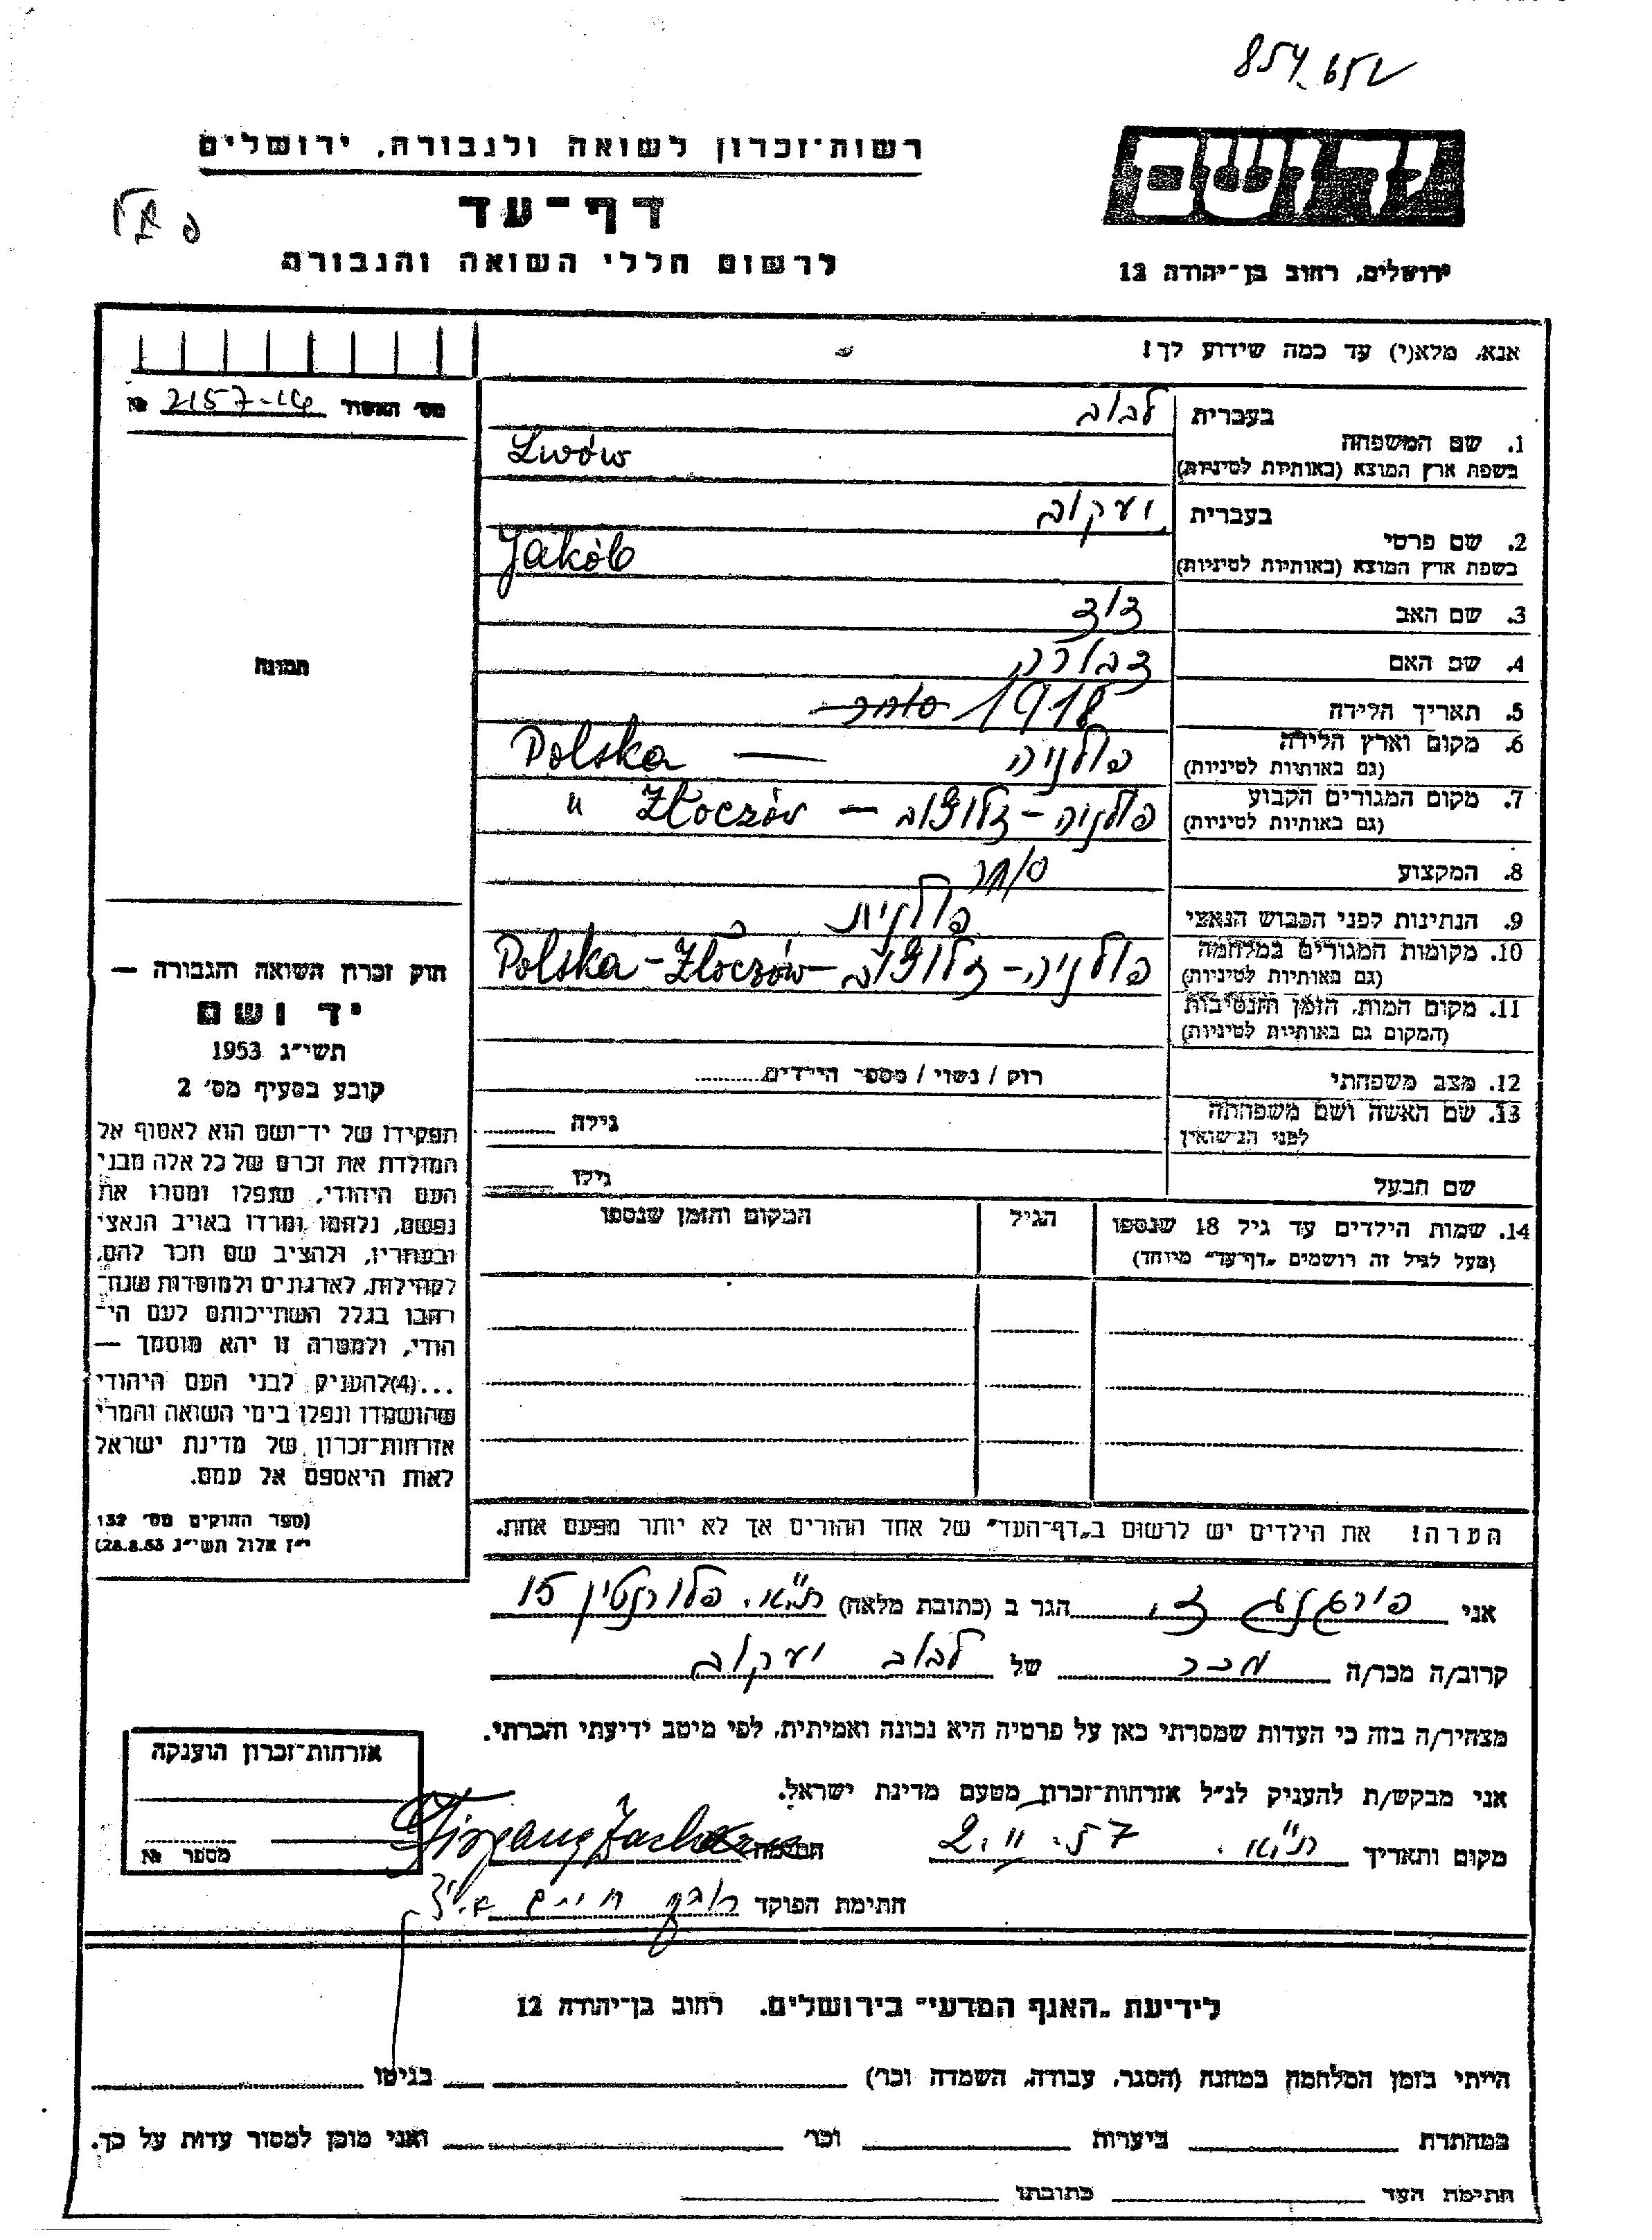 854 652
רשות־זכרון לשואה ולגבורה, ירושלים
יד ושם
דף־עד
לרשום חללי השואה והגבורה
ירושלים, רחוב בן־יהודה 12
אנא, מלא(י) עד כמה שידוע לך!
מס' האשור 2157-14 №
1. שם המשפחה
בעברית לבוב
בשפת ארץ המוצא (באותיות לטיניות) Lwów
2. שם פרטי
בעברית יעקוב
בשפת ארץ המוצא (באותיות לטיניות) Jakób
3. שם האב דוד
4. שם האם דבורה
5. תאריך הלידה 1918 סוחר
6. מקום וארץ הלידה
(גם באותיות לטיניות) פולניה — Polska
7. מקום המגורים הקבוע
(גם באותיות לטיניות) פולניה - זלוצ'וב — Złoczów "
8. המקצוע סוחר
9. הנתינות לפני הכבוש הנאצי פולנית
10. מקומות המגורים במלחמה
(גם באותיות לטיניות) פולניה - זלוצ'וב - Polska - Złoczów
11. מקום המות, הזמן והנסיבות
(המקום גם באותיות לטיניות)
12. מצב משפחתי רוק / נשוי / מספר הילדים
13. שם האשה ושם משפחתה
לפני הנישואין גילה
שם הבעל גילו
14. שמות הילדים עד גיל 18 שנספו הגיל המקום והזמן שנספו
(מעל לגיל זה רושמים "דף־עד" מיוחד)
תמונה
חוק זכרון השואה והגבורה —
יד ושם
תשי"ג 1953
קובע בסעיף מס' 2
תפקידו של יד־ושם הוא לאסוף אל
המולדת את זכרם של כל אלה מבני
העם היהודי, שנפלו ומסרו את
נפשם, נלחמו ומרדו באויב הנאצי
ובעוזריו, ולהציב שם וזכר להם,
לקהילות, לארגונים ולמוסדות שנח־
רבו בגלל השתייכותם לעם הי־
הודי, ולמטרה זו יהא מוסמך —
...(4) להעניק לבני העם היהודי
שהושמדו ונפלו בימי השואה והמרי
אזרחות־זכרון של מדינת ישראל
לאות היאספם אל עמם.
(ספר החוקים מס' 132
י"ז אלול תשי"ג 28.8.53)
הערה! את הילדים יש לרשום ב"דף־העד" של אחד ההורים אך לא יותר מפעם אחת.
אני הגר ב (כתובת מלאה) ת"א. פלורנטין 15
קרוב/ה מכר/ה מכר של לבוב יעקוב
מצהיר/ה בזה כי העדות שמסרתי כאן על פרטיה היא נכונה ואמיתית, לפי מיטב ידיעתי והכרתי.
אני מבקש/ת להעניק לנ"ל אזרחות־זכרון מטעם מדינת ישראל.
מקום ותאריך ת"א. 2.II.57 חתימה
חתימת הפוקד
אזרחות־זכרון הוענקה
מספר №
לידיעת "האגף המדעי" בירושלים. רחוב בן־יהודה 12
הייתי בזמן המלחמה במחנה (הסגר, עבודה, השמדה וכו') בגיטו
במחתרת ביערות וכו' ואני מוכן למסור עדות על כך.
חתימת העד כתובתו